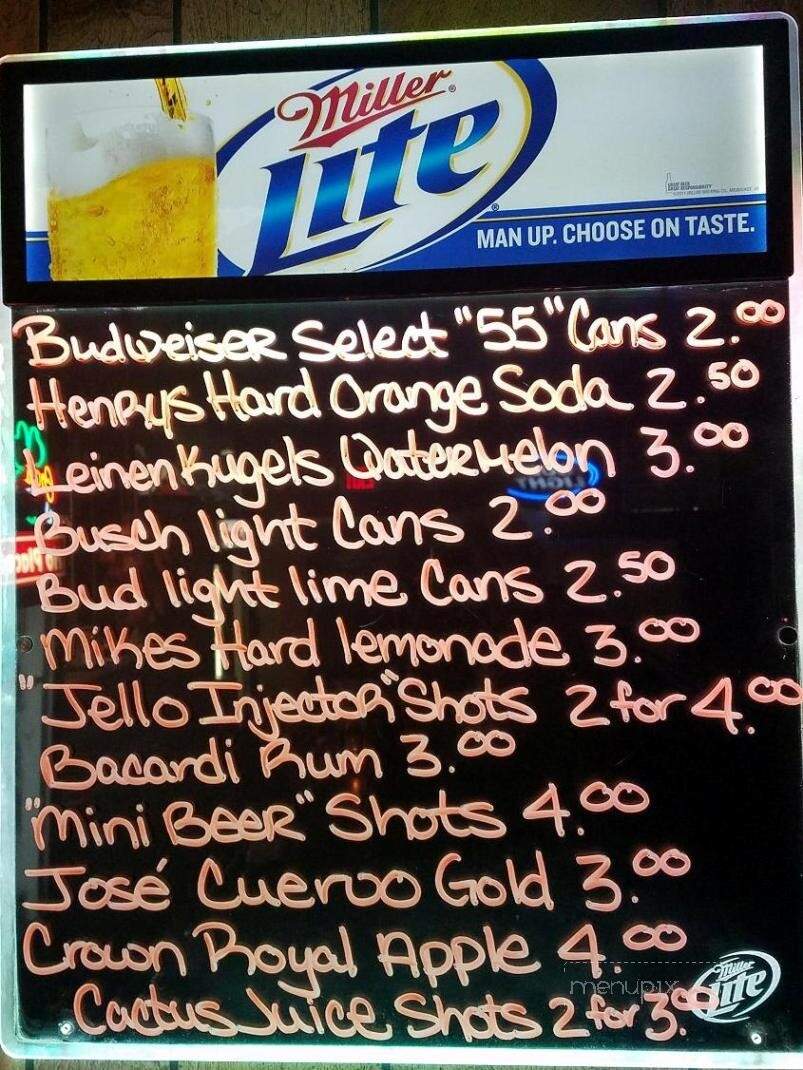 Miller
Lite
MAN UP. CHOOSE ON TASTE.
Budweiser Select "55" Cans 2.00
Henrys Hard Orange Soda 2.50
Leinenkugels Watermelon 3.00
Busch light Cans 2.00
Bud light lime Cans 2.50
Mikes Hard lemonade 3.00
"Jello Injector" Shots 2 for 4.00
Bacardi Rum 3.00
"Mini BEER" Shots 4.00
José Cuervo Gold 3.00
Crown Royal Apple 4.00
Cactus Juice Shots 2 for 3.00
menupix
Miller
Lite